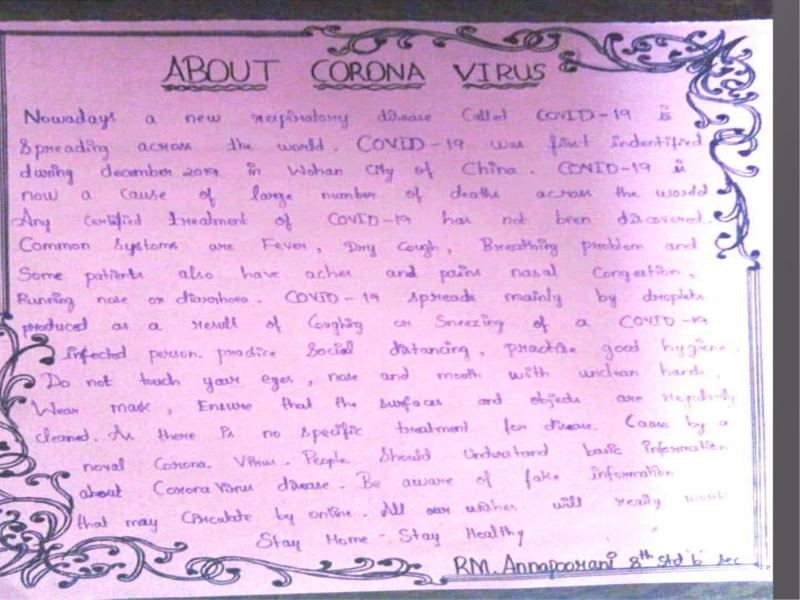 ABOUT CORONA VIRUS
Nowadays a new respiratory disease Called COVID-19 is
Spreading across the world. COVID-19 was first indentified
during december 2019 in Wohan City of China. COVID-19 is
now a cause of large number of deaths across the world
Any Certified treatment of COVID-19 has not been discovered.
Common Systoms are Fever, Dry Cough, Breathing problem and
Some patients also have aches and pains nasal Congestion,
Running nose or diarrhoea. COVID-19 spreads mainly by droplets
produced as a result of Coughing or Sneezing of a COVID-19
infected person. practice Social distancing, practise good hygiene.
Do not touch your eyes, nose and mouth with unclean hands.
Wear mask, Ensure that the surfaces and objects are regularly
cleaned. As there is no specific treatment for disease. Cause by a
noval Corona Virus. People Should Understand basic information
about Corona Virus disease. Be aware of fake information
that may Circulate by online. All our wishes will really work
Stay Home - Stay Healthy
RM. Annapoorani 8th std 'b' sec